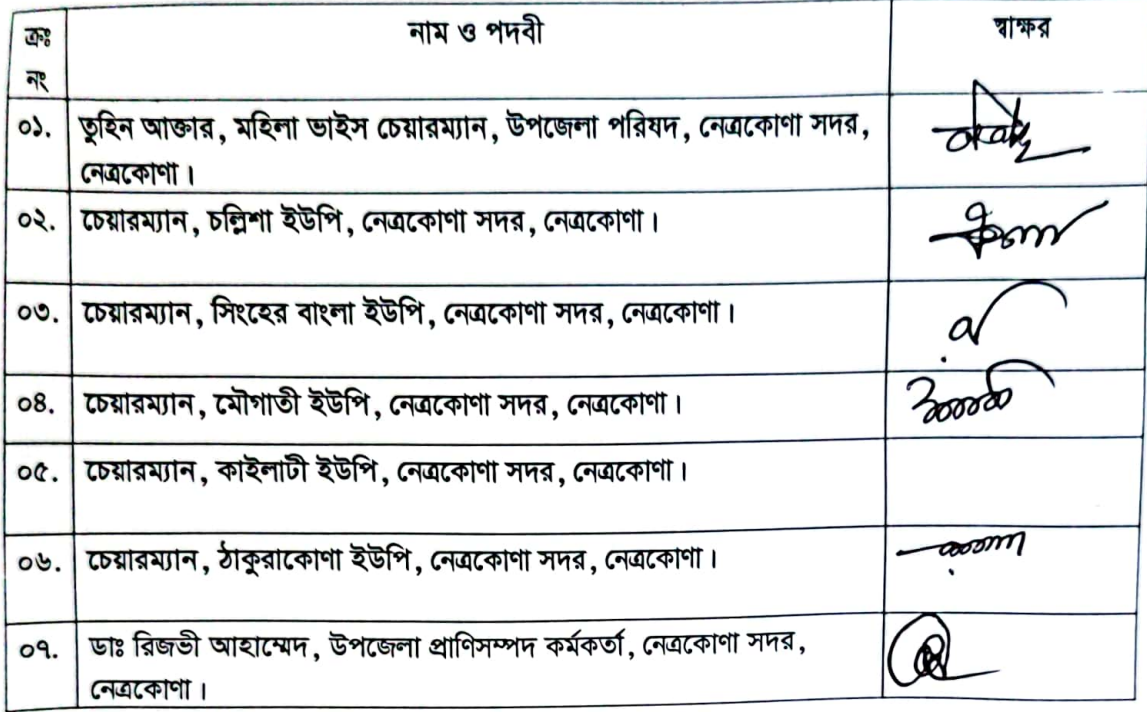 ক্রঃ নাম ও পদবী স্বাক্ষর
নং
০১. তুহিন আক্তার, মহিলা ভাইস চেয়ারম্যান, উপজেলা পরিষদ, নেত্রকোণা সদর,
নেত্রকোণা।
০২. চেয়ারম্যান, চল্লিশা ইউপি, নেত্রকোণা সদর, নেত্রকোণা।
০৩. চেয়ারম্যান, সিংহের বাংলা ইউপি, নেত্রকোণা সদর, নেত্রকোণা।
০৪. চেয়ারম্যান, মৌগাতী ইউপি, নেত্রকোণা সদর, নেত্রকোণা।
০৫. চেয়ারম্যান, কাইলাটী ইউপি, নেত্রকোণা সদর, নেত্রকোণা।
০৬. চেয়ারম্যান, ঠাকুরাকোণা ইউপি, নেত্রকোণা সদর, নেত্রকোণা।
০৭. ডাঃ রিজভী আহাম্মেদ, উপজেলা প্রাণিসম্পদ কর্মকর্তা, নেত্রকোণা সদর,
নেত্রকোণা।